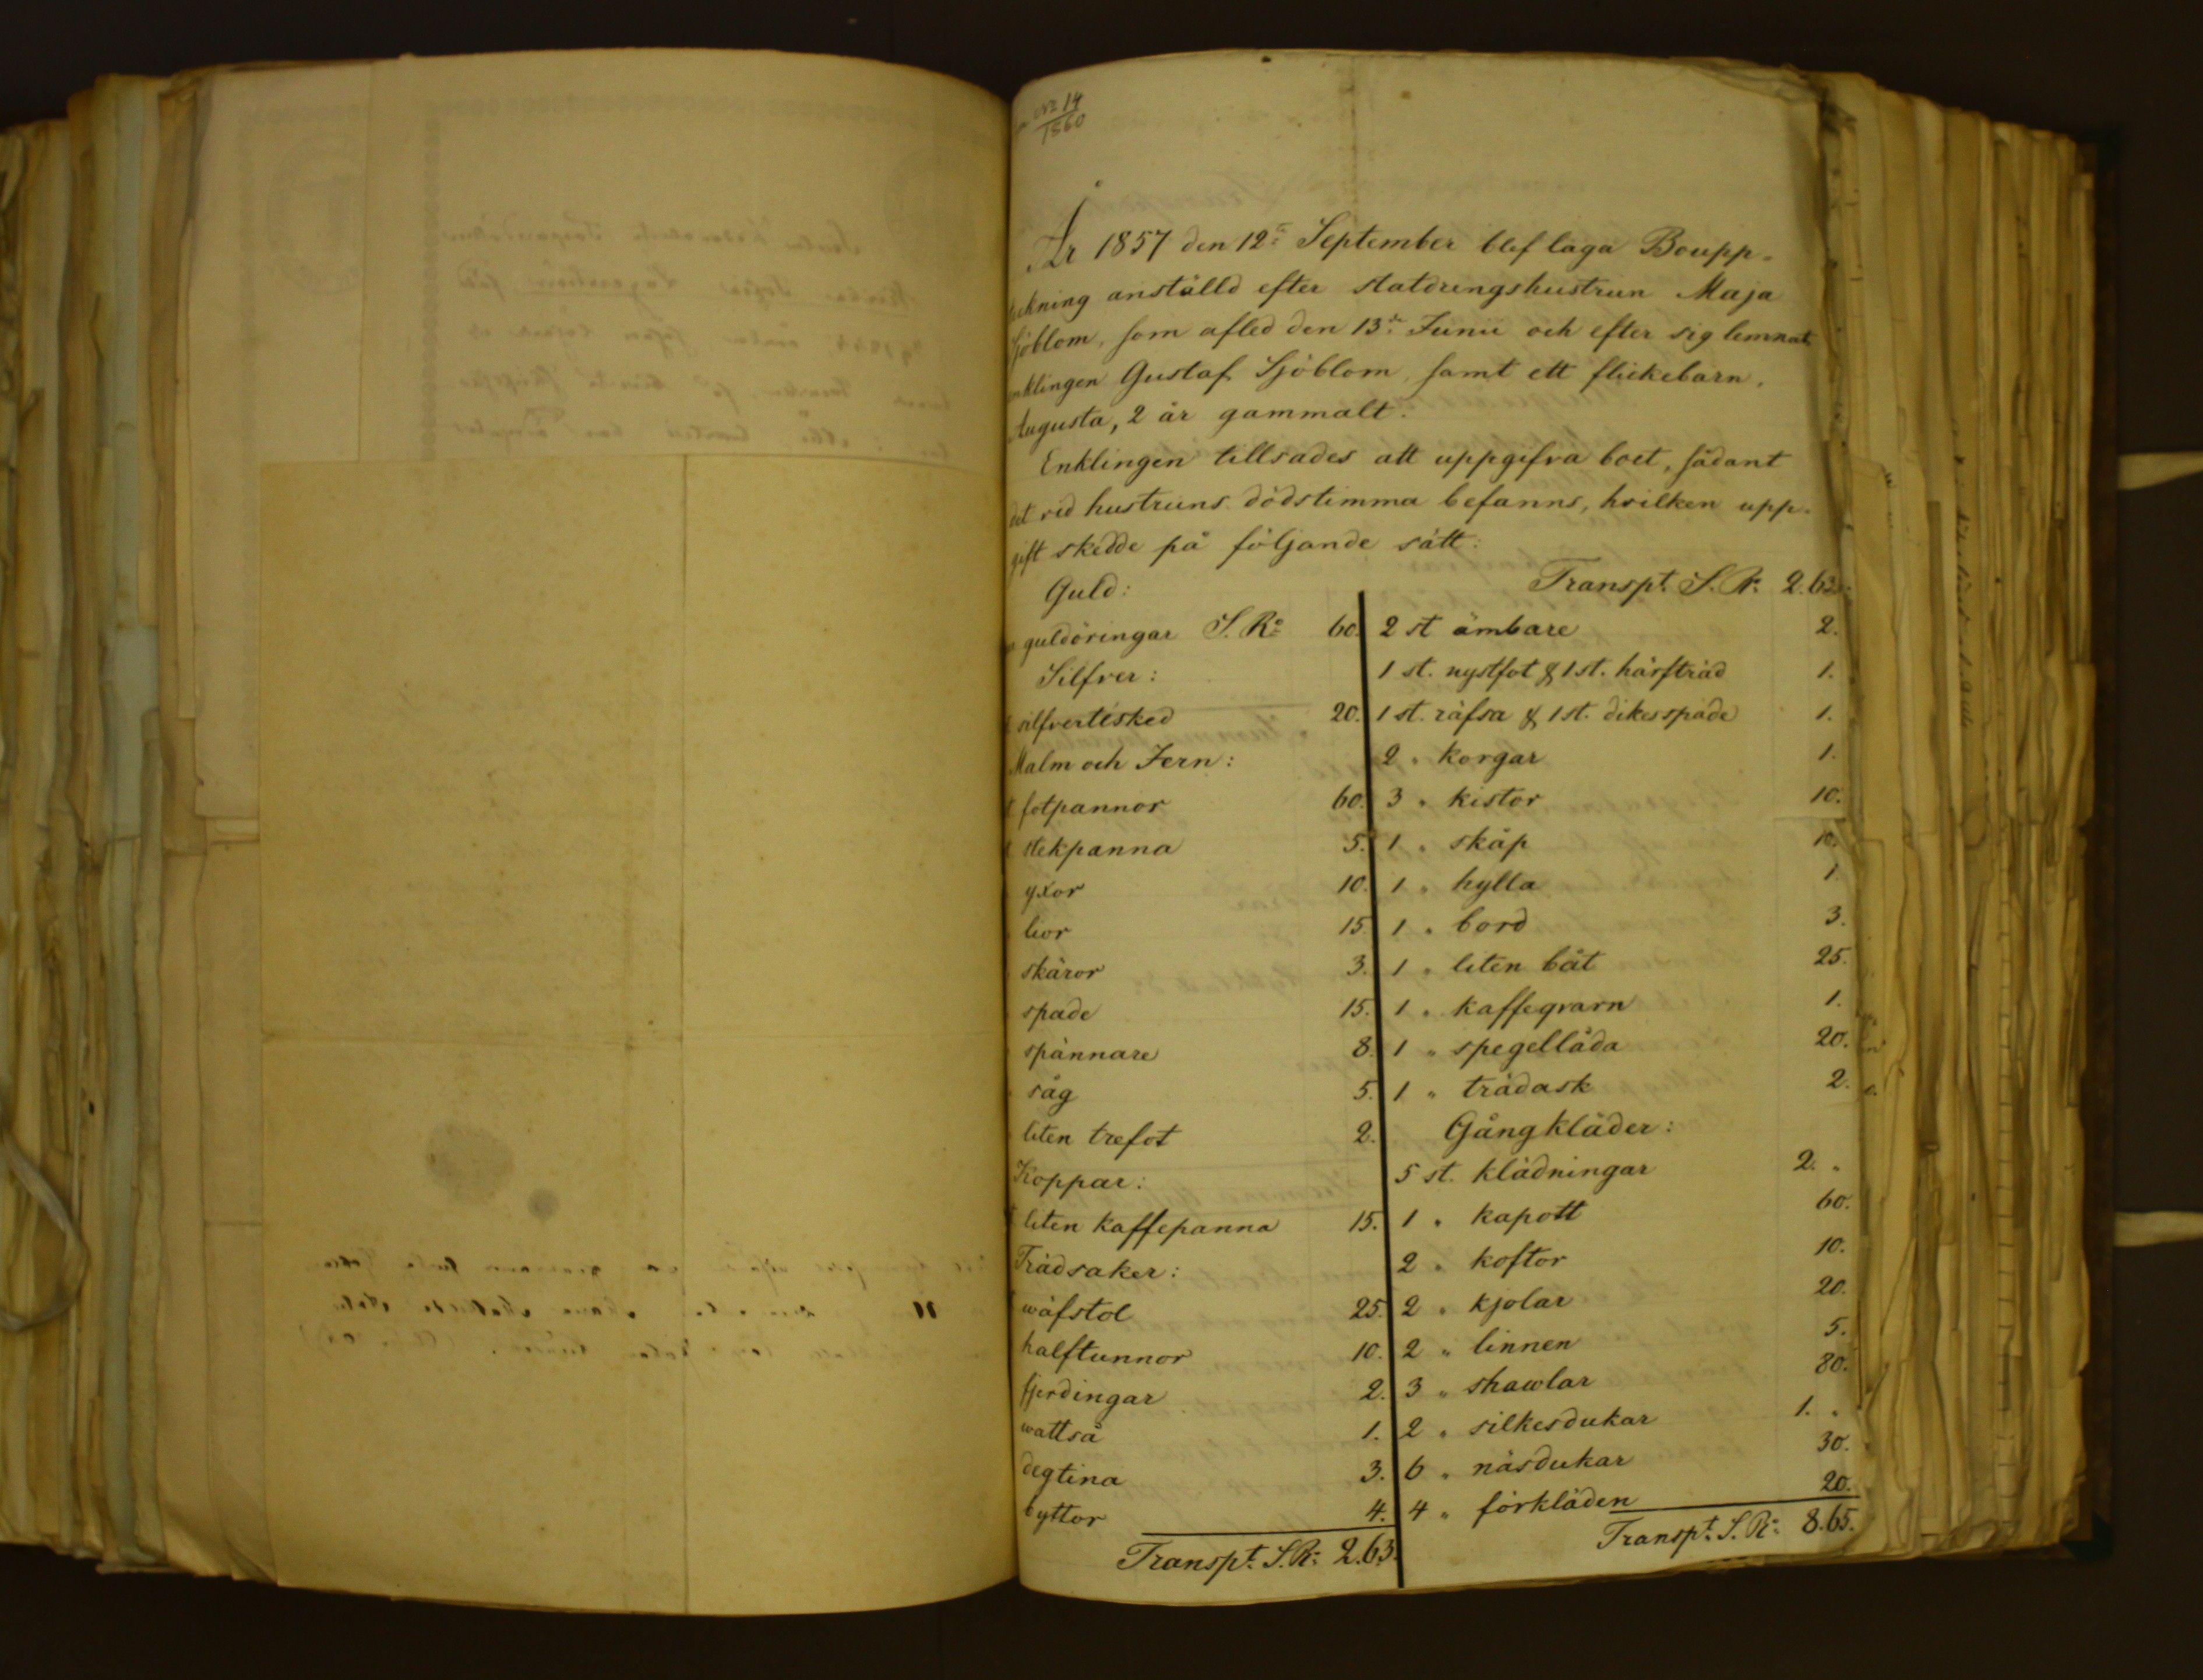 14
1860
År 1857 den 12te September blef laga Boupp-
teckning anställd efter statdrengshustrun Maja
Sjöblom, som afled den 13de Junii och efter sig lemnat
enklingen Gustaf Sjöblom, samt ett flickebarn,
Augusta, 2 år gammalt.
Enklingen tillsades att uppgifva boet, sådant
det vid hustruns dödstimma befanns, hvilken upp-
gift skedde på följande sätt:
Guld:
guldöringar S. Rr 60.
Silfver:
silfvertésked 20.
Malm och Jern:
fotpannor 60.
stekpanna 5.
yxor 10.
lior 15.
skäror 3.
spade 15.
spännare 8.
såg 5.
liten trefot 2.
Koppar:
liten kaffepanna 15.
Trädsaker:
wäfstol 25.
halftunnor 10.
fjerdingar 2.
wattså 1.
degtina 3.
byttor 4.
Transpt. S. Rr 2.63.
Transpt. S. Rr 2.63.
2 st ämbare 2.
1 st. nystfot & 1 st. härfträd 1.
1 st. räfsa & 1 st. dikesspade 1.
2 " korgar 1.
3 " kistor 10.
1 " skåp 10.
1 " hylla 1.
1 " bord 3.
1 " liten båt 25.
1 " kaffeqvarn 1.
1 " spegellåda 20.
1 " trädask 2.
Gångkläder:
5 st. klädningar 2. "
1 " kapott 60.
2 " koftor 10.
2 " kjolar 20.
2 " linnen 5.
3 " shawlar 80.
2 " silkesdukar 1. "
6 " näsdukar 30.
4 " förkläden 20.
Transpt. S. Rr 8.65.